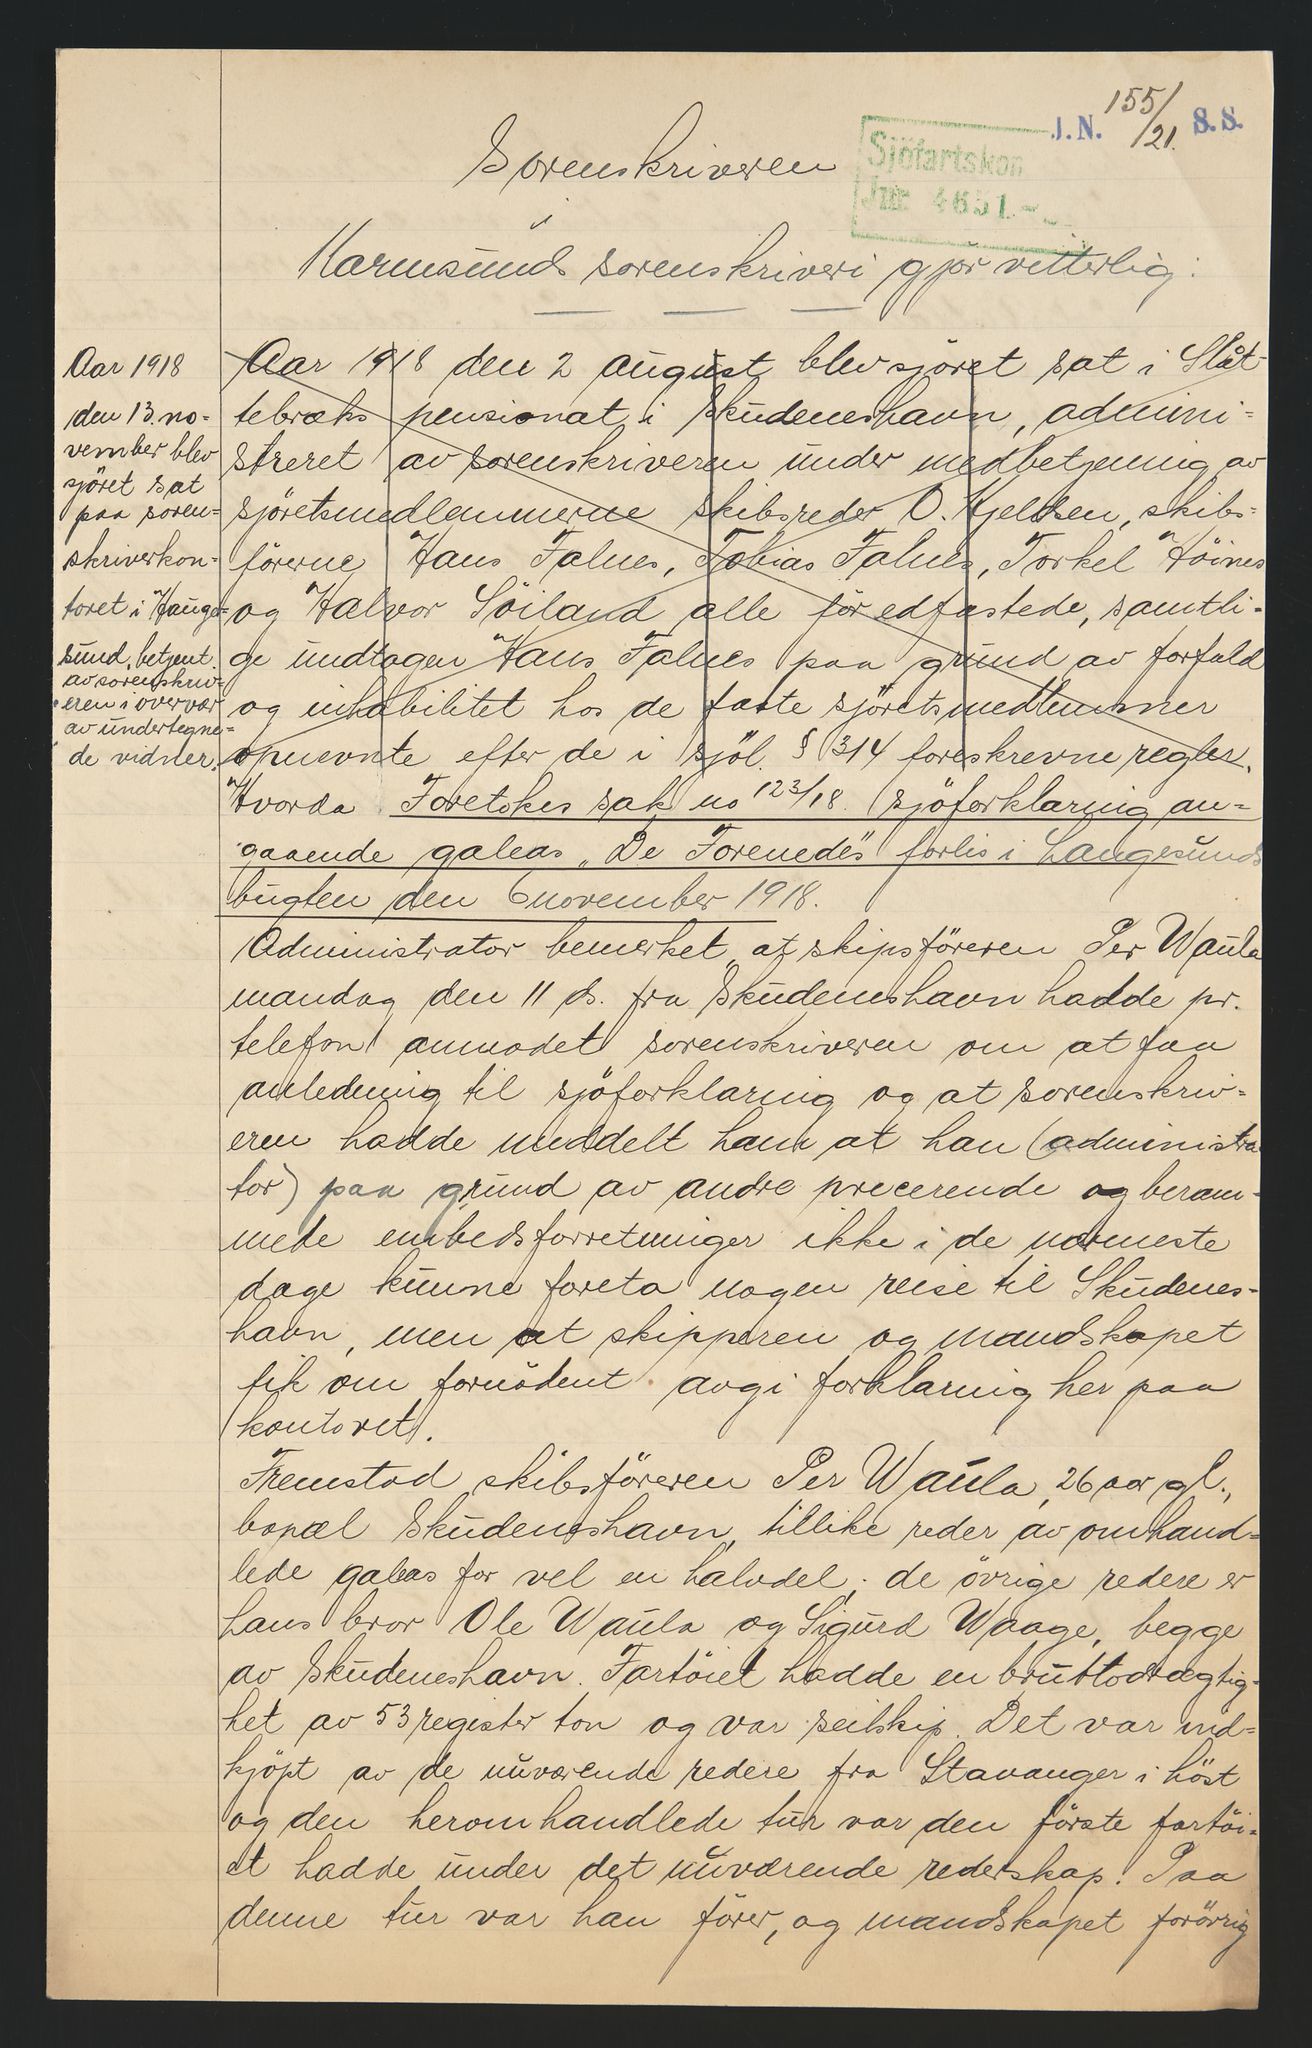 155/21.
J.N. S.S.
Sjöfartskon
Jnr. 4651.-
Sorenskriveren
i
Karmsunds sorenskriveri gjør vitterlig:
Aar 1918
den 13. no-
vember blev
sjöret sat
paa soren-
skriverkon-
toret i Hauge-
sund, betjent
av sorenskriv-
eren i overvær
av undertegne-
de vidner.
Aar 1918 den 2 august blev sjöret sat i Slåt-
tebræks pensionat i Skudeneshavn, admini-
streret av sorenskriveren under medbetjening av
sjöretsmedlemmerne skibsreder O. Kjeldsen, skibs-
förerne Hans Falnes, Tobias Falnes, Torkel Höines
og Halvor Söiland alle för edfæstede, samtli-
ge undtagen Hans Falnes paa grund av forfald
og inhabilitet hos de faste sjöretsmedlemmer
opnevnte efter de i sjöl. § 314 foreskrevne regler.
Hvorda Foretokes sak no 123/18. (sjöforklaring an-
gaaende galeas "De Forenede"s forlis i Langesunds
bugten den 6 november 1918.
Administrator bemerket, at skipsföreren Per Waula
mandag den 11 ds. fra Skudeneshavn hadde pr.
telefon anmodet sorenskriveren om at faa
anledning til sjöforklaring og at sorenskriv-
eren hadde meddelt ham at han (administra
tor) paa grund av andre precerende og beram-
mede embedsforretninger ikke i de nærmeste
dage kunne foreta nogen reise til Skudenes-
havn, men at skipperen og mandskapet
fik om fornödent avgi forklaring her paa
kontoret.
Fremstod skibsföreren Per Waula, 26 aar gl.,
bopæl Skudeneshavn, tillike reder av omhand-
lede galeas for vel en halvdel; de övrige redere er
hans bror Ole Waula og Sigurd Waage, begge
av Skudeneshavn. Fartöiet hadde en bruttodrægtig-
het av 53 register ton og var seilskip. Det var ind-
kjöpt av de nuværende redere fra Stavanger i höst
og den heromhandlede tur var den förste fartöi-
et hadde under det nuværende rederskap. Paa
denne tur var han förer, og mandskapet forövrig